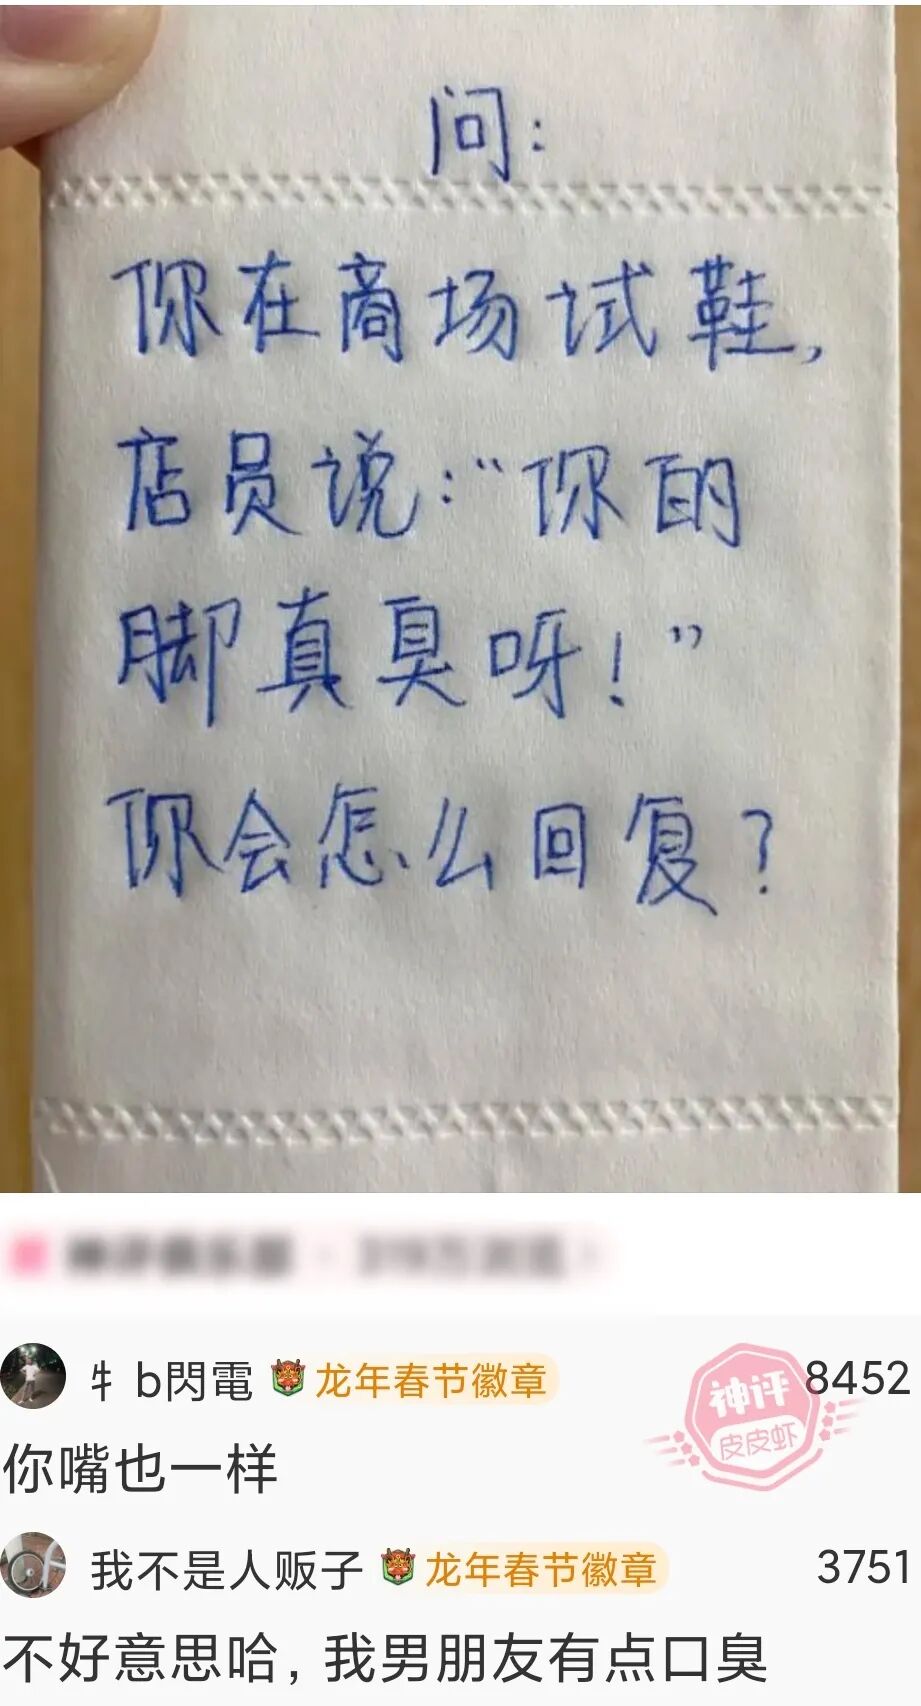 问:
你在商场试鞋,
店员说:“你的
脚真臭呀!”
你会怎么回复?
牜b閃電 龙年春节徽章 8452
神评
皮皮虾
你嘴也一样
我不是人贩子 龙年春节徽章 3751
不好意思哈, 我男朋友有点口臭